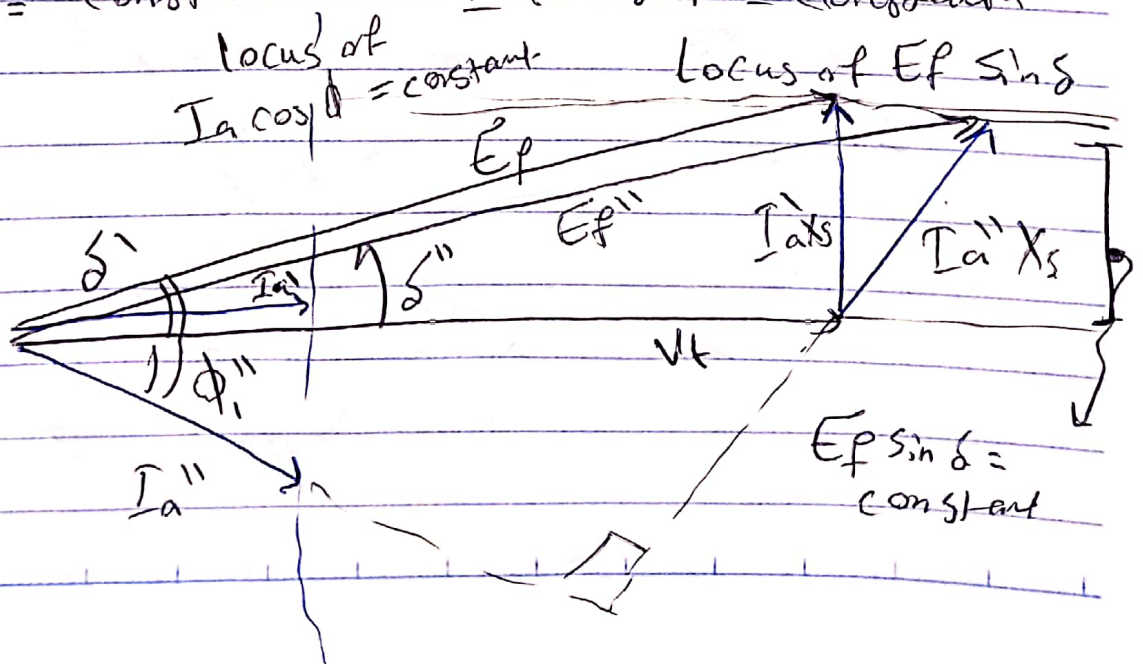 = const = = constant
locus of
Ia cos ϕ = constant
Locus of Ef sin δ
Ef
Ef''
δ'
Ia'
δ''
Ia'Xs
Ia''Xs
ϕ''
Vt
Ia''
Ef sin δ =
constant